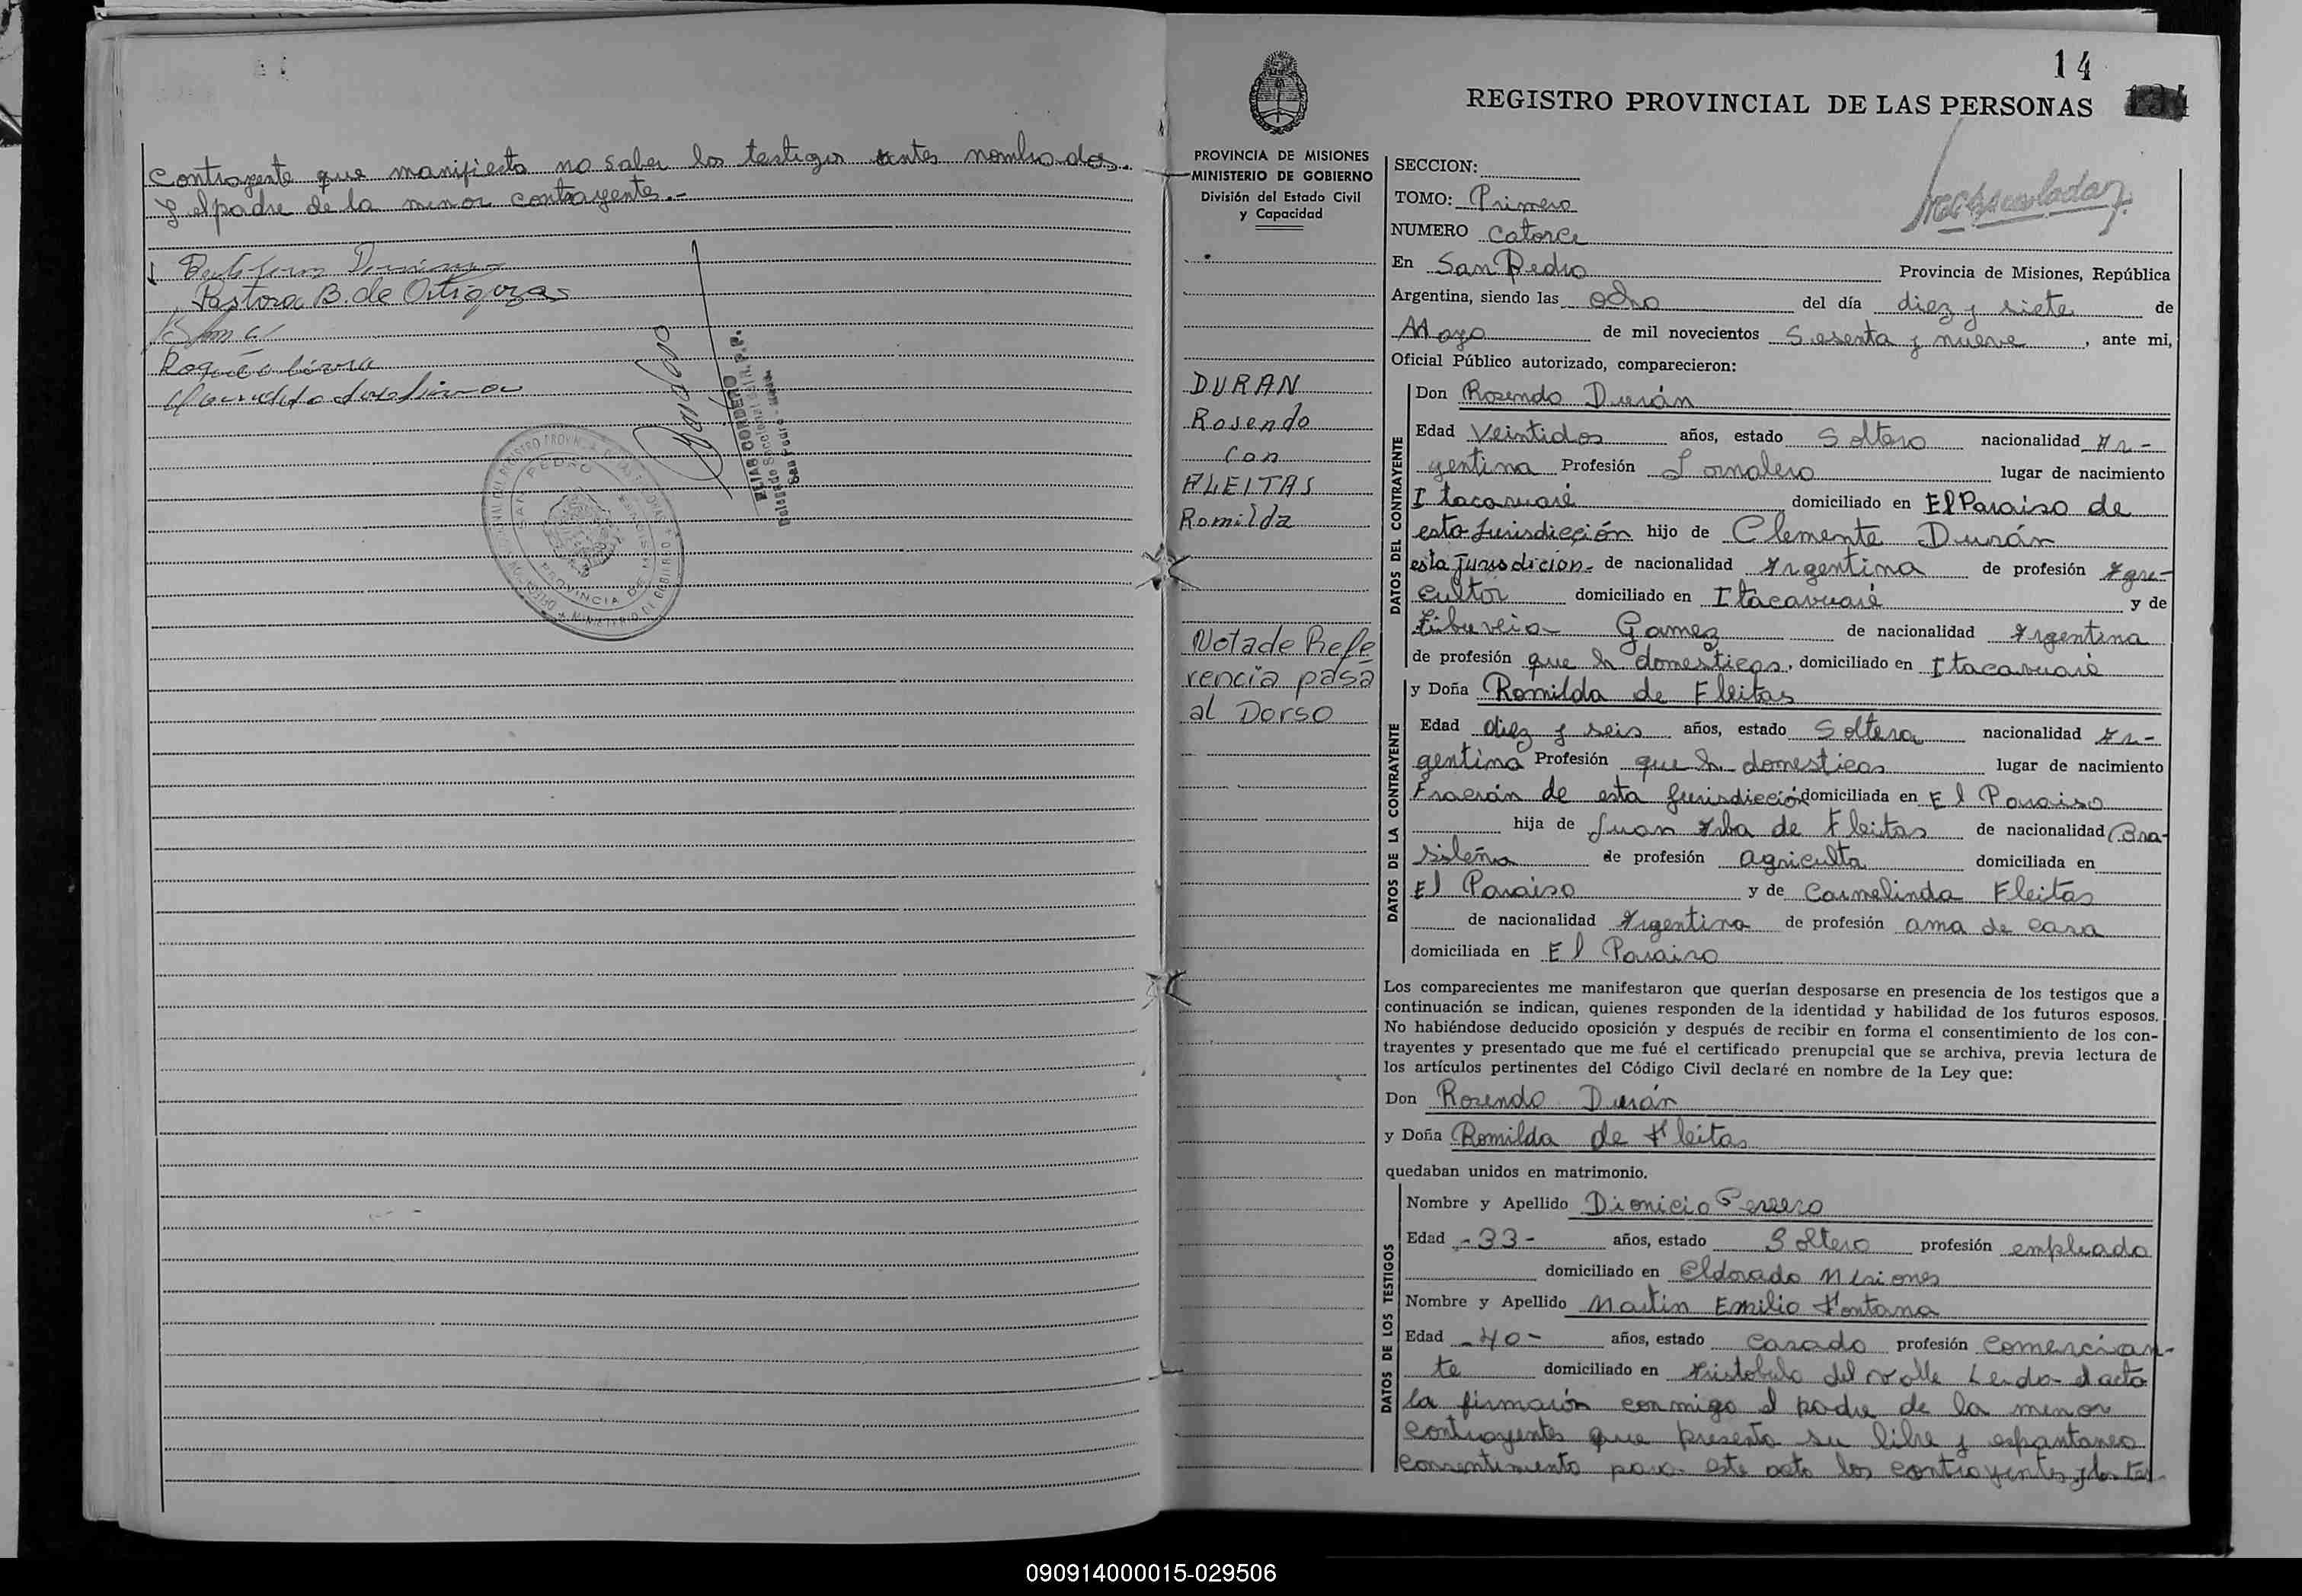 contrayente que manifiesta no saber los testigos antes nombrados.
Y el padre de la menor contrayente.-
Pastora B. de Ortigoza
SAN PEDRO
PROVINCIA DE MISIONES
MINISTERIO DE GOBIERNO
CORDERO
14
REGISTRO PROVINCIAL DE LAS PERSONAS
PROVINCIA DE MISIONES
MINISTERIO DE GOBIERNO
División del Estado Civil
y Capacidad
DURAN
Rosendo
Con
FLEITAS
Romilda
Nota de Refe
rencia pasa
al Dorso
SECCION:
TOMO: Primero
NUMERO Catorce
En San Pedro Provincia de Misiones, República
Argentina, siendo las ocho del día diez y siete de
Mayo de mil novecientos Sesenta y nueve, ante mi,
Oficial Público autorizado, comparecieron:
DATOS DEL CONTRAYENTE
Don Rosendo Durán
Edad Veintidos años, estado Soltero nacionalidad Ar-
gentina Profesión Jornalero lugar de nacimiento
Itacaruaré domiciliado en El Paraiso de
esta Jurisdicción hijo de Clemente Durán
esta jurisdicion- de nacionalidad Argentina de profesión Agri-
cultor domiciliado en Itacaruaré y de
Gamez de nacionalidad Argentina
de profesión que h domesticos, domiciliado en Itacaruaré
DATOS DE LA CONTRAYENTE
y Doña Romilda de Fleitas
Edad diez y seis años, estado Soltera nacionalidad Ar-
gentina Profesión que h domesticos lugar de nacimiento
Fracrán de esta Jurisdicción domiciliada en El Paraiso
hija de Juan Alba de Fleitas de nacionalidad Bra-
sileña de profesión agriculta domiciliada en
El Paraiso y de Carmelinda Fleitas
de nacionalidad Argentina de profesión ama de casa
domiciliada en El Paraiso
Los comparecientes me manifestaron que querían desposarse en presencia de los testigos que a
continuación se indican, quienes responden de la identidad y habilidad de los futuros esposos.
No habiéndose deducido oposición y después de recibir en forma el consentimiento de los con-
trayentes y presentado que me fué el certificado prenupcial que se archiva, previa lectura de
los artículos pertinentes del Código Civil declaré en nombre de la Ley que:
Don Rosendo Durán
y Doña Romilda de Fleitas
quedaban unidos en matrimonio.
DATOS DE LOS TESTIGOS
Nombre y Apellido Dionicio
Edad -33- años, estado Soltero profesión empleado
domiciliado en Eldorado Misiones
Nombre y Apellido Martin Emilio Fontana
Edad -40- años, estado casado profesión comercian-
te domiciliado en Aristobulo del Valle Leida el acta
la firmarón conmigo el padre de la menor
contrayentes que presento su libre y espantaneo
consentimiento para este acto los contrayentes y los tes-
090914000015-029506